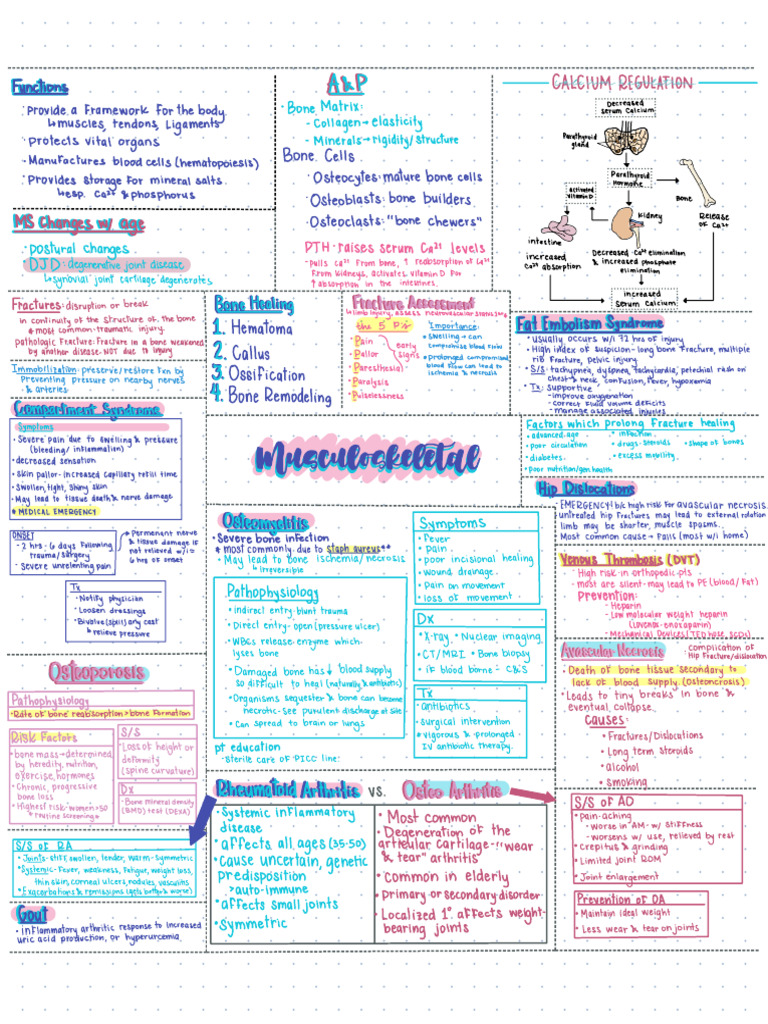 Functions
· Provide a framework for the body
↳ muscles, tendons, ligaments
· protects vital organs
· Manufactures blood cells (hematopoiesis)
· Provides storage for mineral salts
↳ esp. Ca²⁺ & phosphorus
MS Changes w/ age
· postural changes
· DJD: degenerative joint disease
↳ synovial joint cartilage degenerates
A&P
· Bone Matrix:
- Collagen → elasticity
- Minerals → rigidity/structure
Bone Cells
· Osteocytes: mature bone cells
· Osteoblasts: bone builders
· Osteoclasts: "bone chewers"
PTH: raises serum Ca²⁺ levels
· pulls Ca²⁺ from bone, ↑ reabsorption of Ca²⁺
from kidneys, activates vitamin D for
↑ absorption in the intestines.
CALCIUM REGULATION
Decreased
serum Calcium
Parathyroid
gland
Parathyroid
Hormone
activated
vitamin D
Kidney
Bone
Release
of Ca²⁺
intestine
increased
Ca²⁺ absorption
Decreased Ca²⁺ elimination
& increased phosphate
elimination
increased
Serum Calcium
Fractures: disruption or break
in continuity of the structure of the bone
* most common: traumatic injury.
pathologic fracture: fracture in a bone weakened
by another disease. NOT due to injury
Immobilization: preserve/restore fxn by
preventing pressure on nearby nerves
& arteries
Bone Healing
1. Hematoma
2. Callus
3. Ossification
4. Bone Remodeling
Fracture Assessment
w/limb injury, assess neurovascular status
the 5 P's
Pain
Pallor
early
signs
Paresthesia
Paralysis
Pulselessness
Importance:
· Swelling → can
compromise blood flow
· prolonged compromised
blood flow can lead to
ischemia & necrosis
Fat Embolism Syndrome
· usually occurs w/i 72 hrs of injury
· High index of suspicion - long bone fracture, multiple
rib fracture, pelvic injury
· S/S: tachypnea, dyspnea, tachycardia, petechial rash on
chest & neck, confusion, fever, hypoxemia
· Tx: supportive
- improve oxygenation
- correct fluid volume deficits
- manage associated injuries
Compartment Syndrome
Symptoms
· Severe pain due to swelling & pressure
(bleeding/inflammation)
· decreased sensation
· skin pallor - increased capillary refill time
· Swollen, tight, shiny skin
· May lead to tissue death & nerve damage
* MEDICAL EMERGENCY
ONSET
- 2 hrs - 6 days following
trauma/surgery
- Severe unrelenting pain
* Permanent nerve
& tissue damage if
not relieved w/i
6 hrs of onset
Tx
· Notify physician
· Loosen dressings
· Bivalve (split) any cast
& relieve pressure
Musculoskeletal
Factors which prolong fracture healing
· advanced age
· poor circulation
· diabetes
· poor nutrition/gen health
· infection
· drugs - steroids
· excess motility
· shape of bones
Hip Dislocations
EMERGENCY! b/c high risk for avascular necrosis
untreated hip fractures may lead to external rotation
limb may be shorter, muscle spasms.
Most common cause → Falls (most w/i home)
Osteomyelitis
· Severe bone infection
* most commonly due to staph aureus**
· May lead to bone ischemia/necrosis
↳ irreversible
Pathophysiology
· indirect entry - blunt trauma
· Direct entry - open (pressure ulcer)
· WBCs release enzyme which
lyses bone
· Damaged bone has ↓ blood supply
so difficult to heal (naturally & antibiotic)
· Organisms sequester & bone can become
necrotic - see purulent discharge at site
· Can spread to brain or lungs
pt education
- sterile care of PICC line.
Symptoms
· Fever
· pain
· poor incisional healing
· wound drainage
· pain on movement
· loss of movement
Dx
· X-ray · Nuclear imaging
· CT/MRI · Bone biopsy
· if blood borne - C&S
Tx
· antibiotics
· surgical intervention
* vigorous & prolonged
IV antibiotic therapy.
Venous Thrombosis (DVT)
· High risk in orthopedic pts
· most are silent - may lead to PE (blood/fat)
· Prevention:
- Heparin
- Low molecular weight heparin
(Lovenox - enoxaparin)
- Mechanical Devices (TED hose, SCDs)
Avascular Necrosis
complication of
Hip fracture/dislocation
· Death of bone tissue secondary to
lack of blood supply (osteonecrosis)
· Leads to tiny breaks in bone &
eventual collapse.
Causes:
· Fractures/dislocations
· Long term steroids
· alcohol
· smoking
Osteoporosis
Pathophysiology
· Rate of bone reabsorption > bone formation
Risk Factors
· bone mass → determined
by heredity, nutrition,
exercise, hormones
· Chronic, progressive
bone loss
· Highest risk - women >50
* routine screening *
S/S
· Loss of height or
deformity
(spine curvature)
Dx
· Bone mineral density
(BMD) test (DEXA)
S/S of RA
· Joints - stiff, swollen, tender, warm - symmetric
· Systemic - Fever, weakness, fatigue, weight loss,
thin skin, corneal ulcers, nodules, vasculitis
· Exacerbations & remissions (gets better & worse)
Gout
· inflammatory arthritic response to increased
uric acid production, or hyperuricemia
Rheumatoid Arthritis vs. Osteo Arthritis
· Systemic inflammatory
disease
· affects all ages (35-50)
· Cause uncertain, genetic
predisposition
> auto-immune
· affects small joints
· Symmetric
· Most common
· Degeneration of the
articular cartilage - "wear
& tear" arthritis
· common in elderly
· primary or secondary disorder
· Localized 1° affects weight-
bearing joints
S/S of AO
· Pain - aching
- worse in AM - w/ stiffness
- worsens w/ use, relieved by rest
· Crepitus & grinding
· Limited joint ROM
· Joint enlargement
Prevention of OA
· Maintain ideal weight
· Less wear & tear on joints